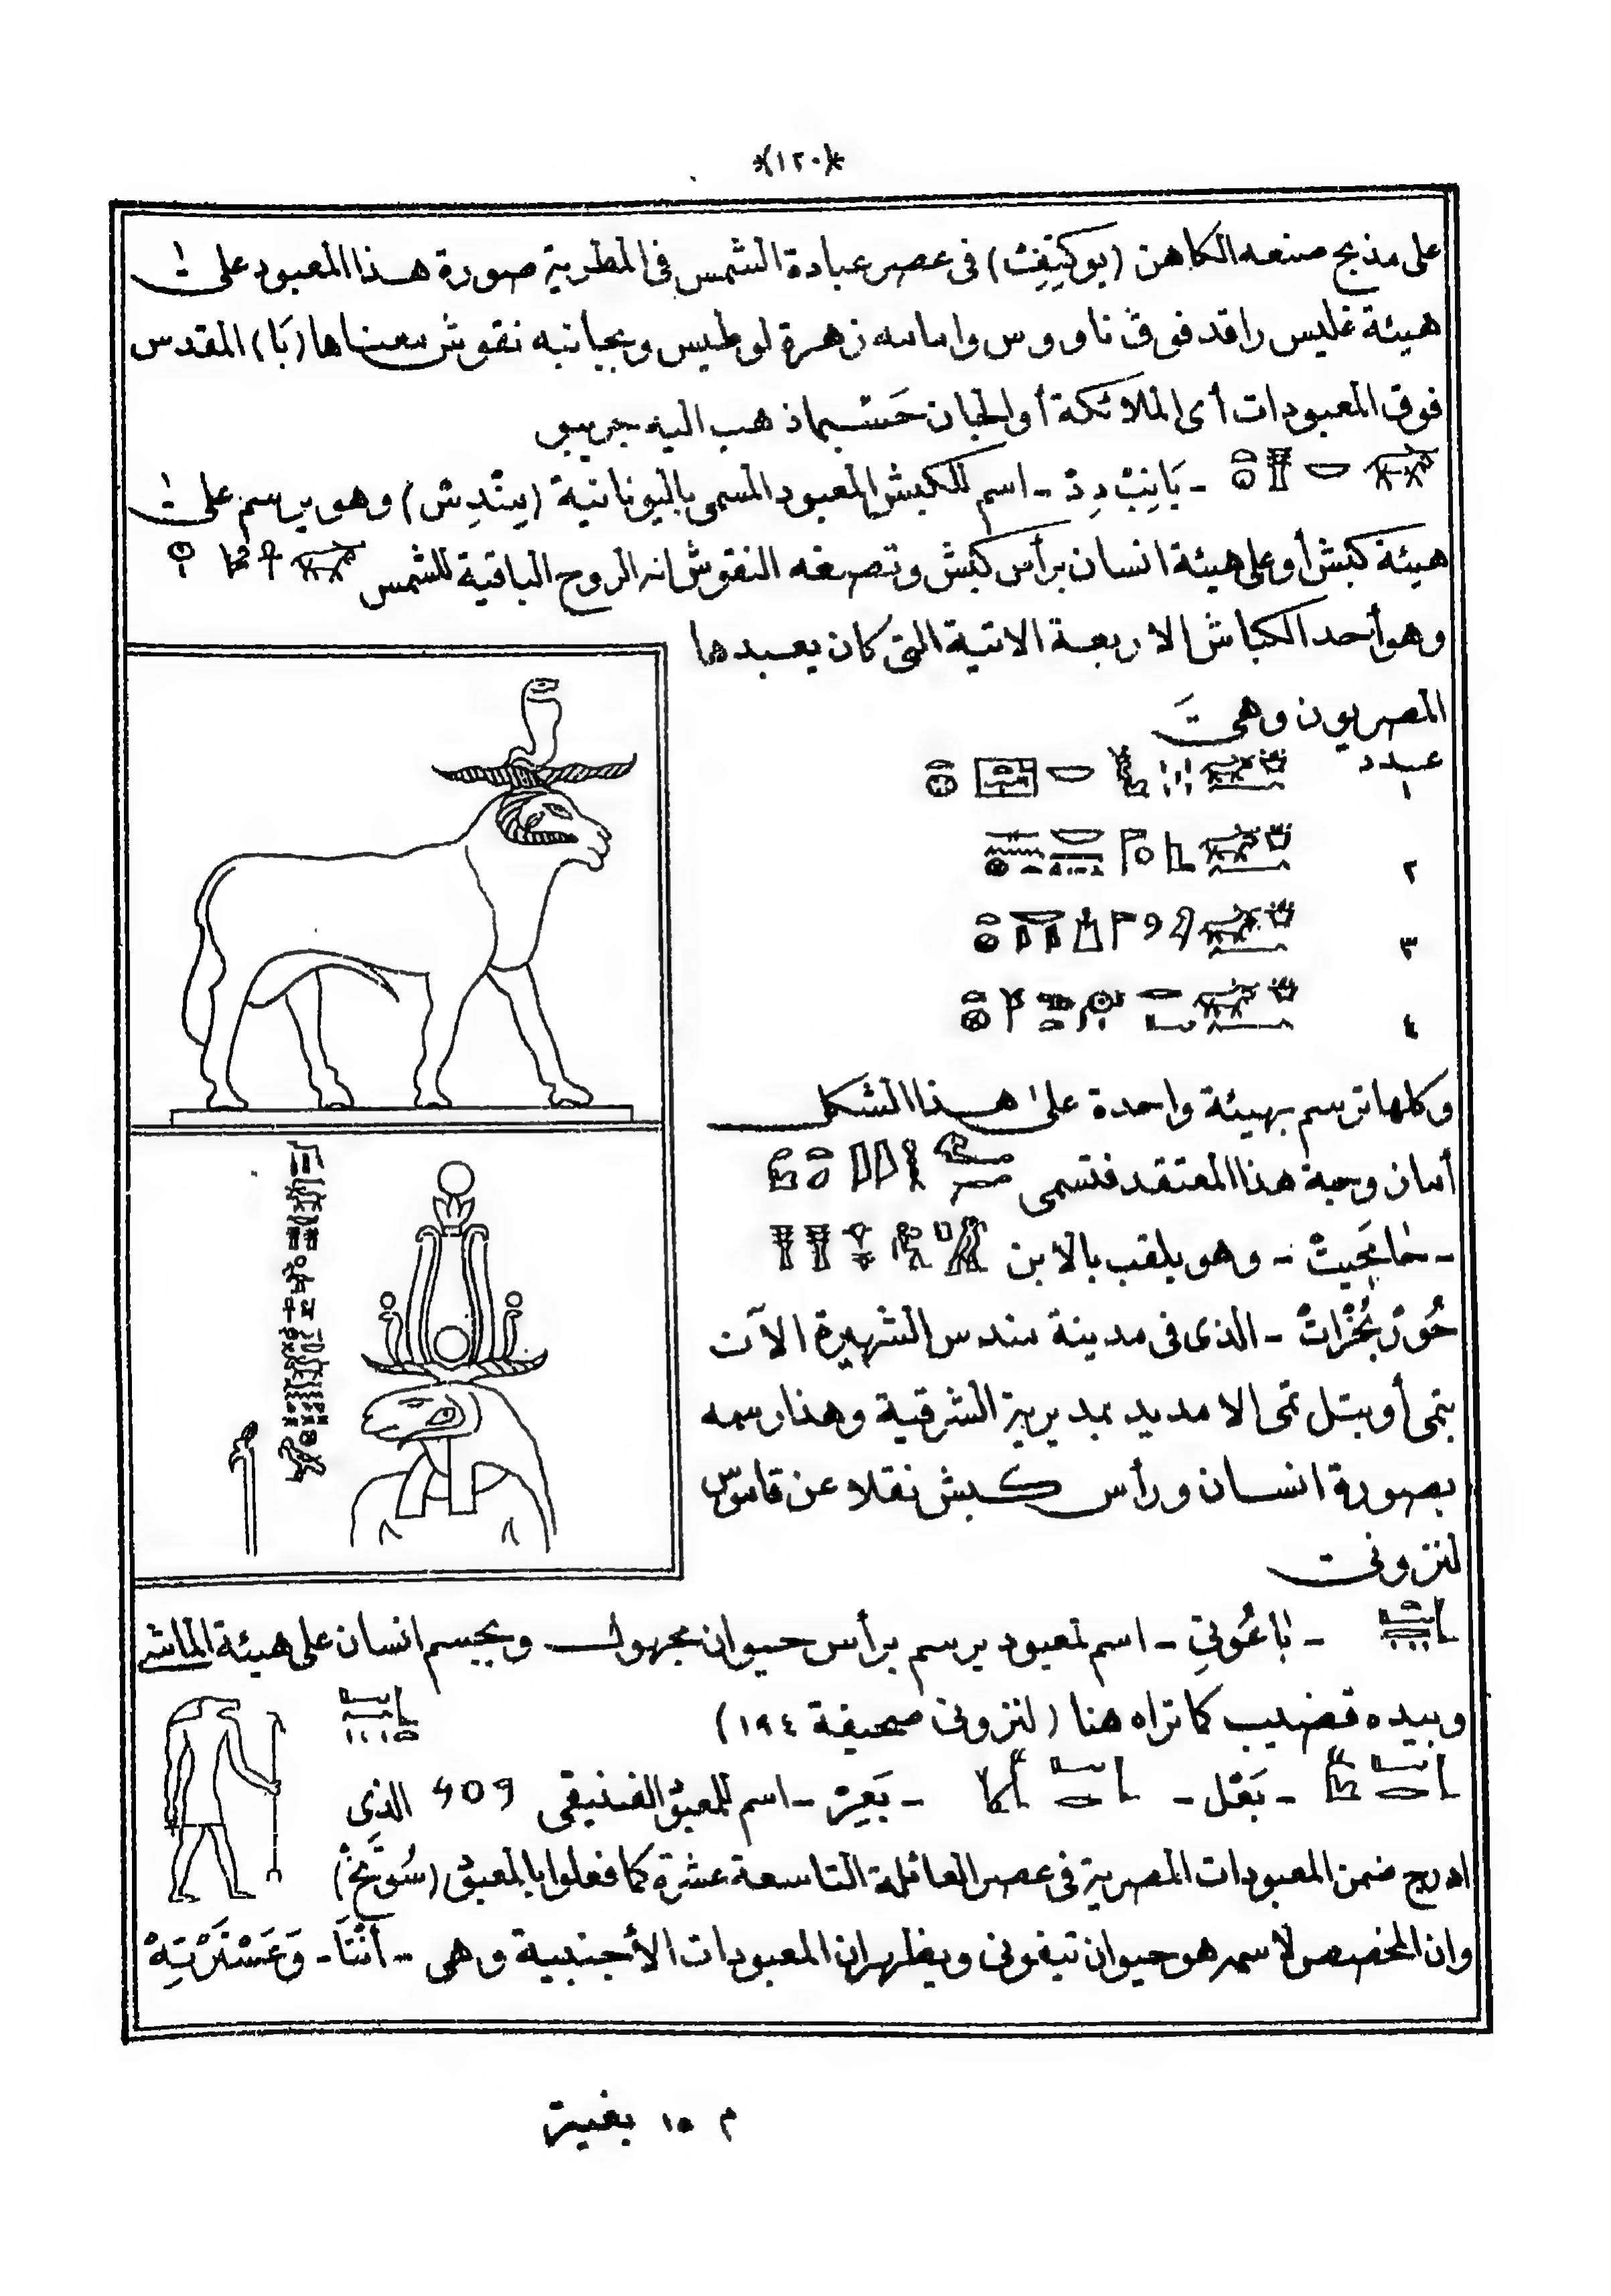 *(١٢٠)*
على مذبح صنعه الكاهن (يوكنِفِث) فى عصر عبادة الشمس فى المطرية صورة هذا المعبود على
هيئة غليس راقد فوق ناووس وامامه زهرة لوطيس وبجانبه نقوش معناها (بَا) المقدس
فوق المعبودات أى الملائكة أو الجان حَسْبما ذهب اليه جريبو
- بَانِبْ دِدْ - اسم للكبش المعبود المسمى باليونانية (مِنْدِسْ) وهو يرسم على
هيئة كبش أو على هيئة انسان برأس كبش وتصفه النقوش انه الروح الباقية للشمس
وهو أحد الكباش الاربعة الاتية التى كان يعبدها
المصريون وهى
عدد
١
٢
٣
٤
وكلها ترسم بهيئة واحدة على هذا الشكل
أما زوجة هذا المعتقد فتسمى
- حامِحِيتْ - وهو يلقب بالابن
حُورْبُخْرَاتْ - الذى فى مدينة مندس الشهيرة الآن
بتمى أو بتل تمى الامديد بمديرية الشرقية وهذا رسمه
بصورة انسان ورأس كبش نقلا عن قاموس
لنزونى
- بَاعُوتِى - اسم لمعبود يرسم برأس حيوان مجهول وبجسم انسان على هيئة الماشى
وبيده قضيب كما تراه هنا (لنزونى صحيفة ١٩٤)
- بَعْل - - بَعِرْ - اسم للمعبود الفنيقى 409 الذى
ادرج ضمن المعبودات المصرية فى عصر العائلة التاسعة عشرة كما فعلوا بالمعبود (سُوتَخْ)
وان المخصص لاسمه هو حيوان تيفونى ويظهر ان المعبودات الأجنبية وهى - أَنْتَا - وَعَسْتَرْتِهْ
م ١٥ بغية